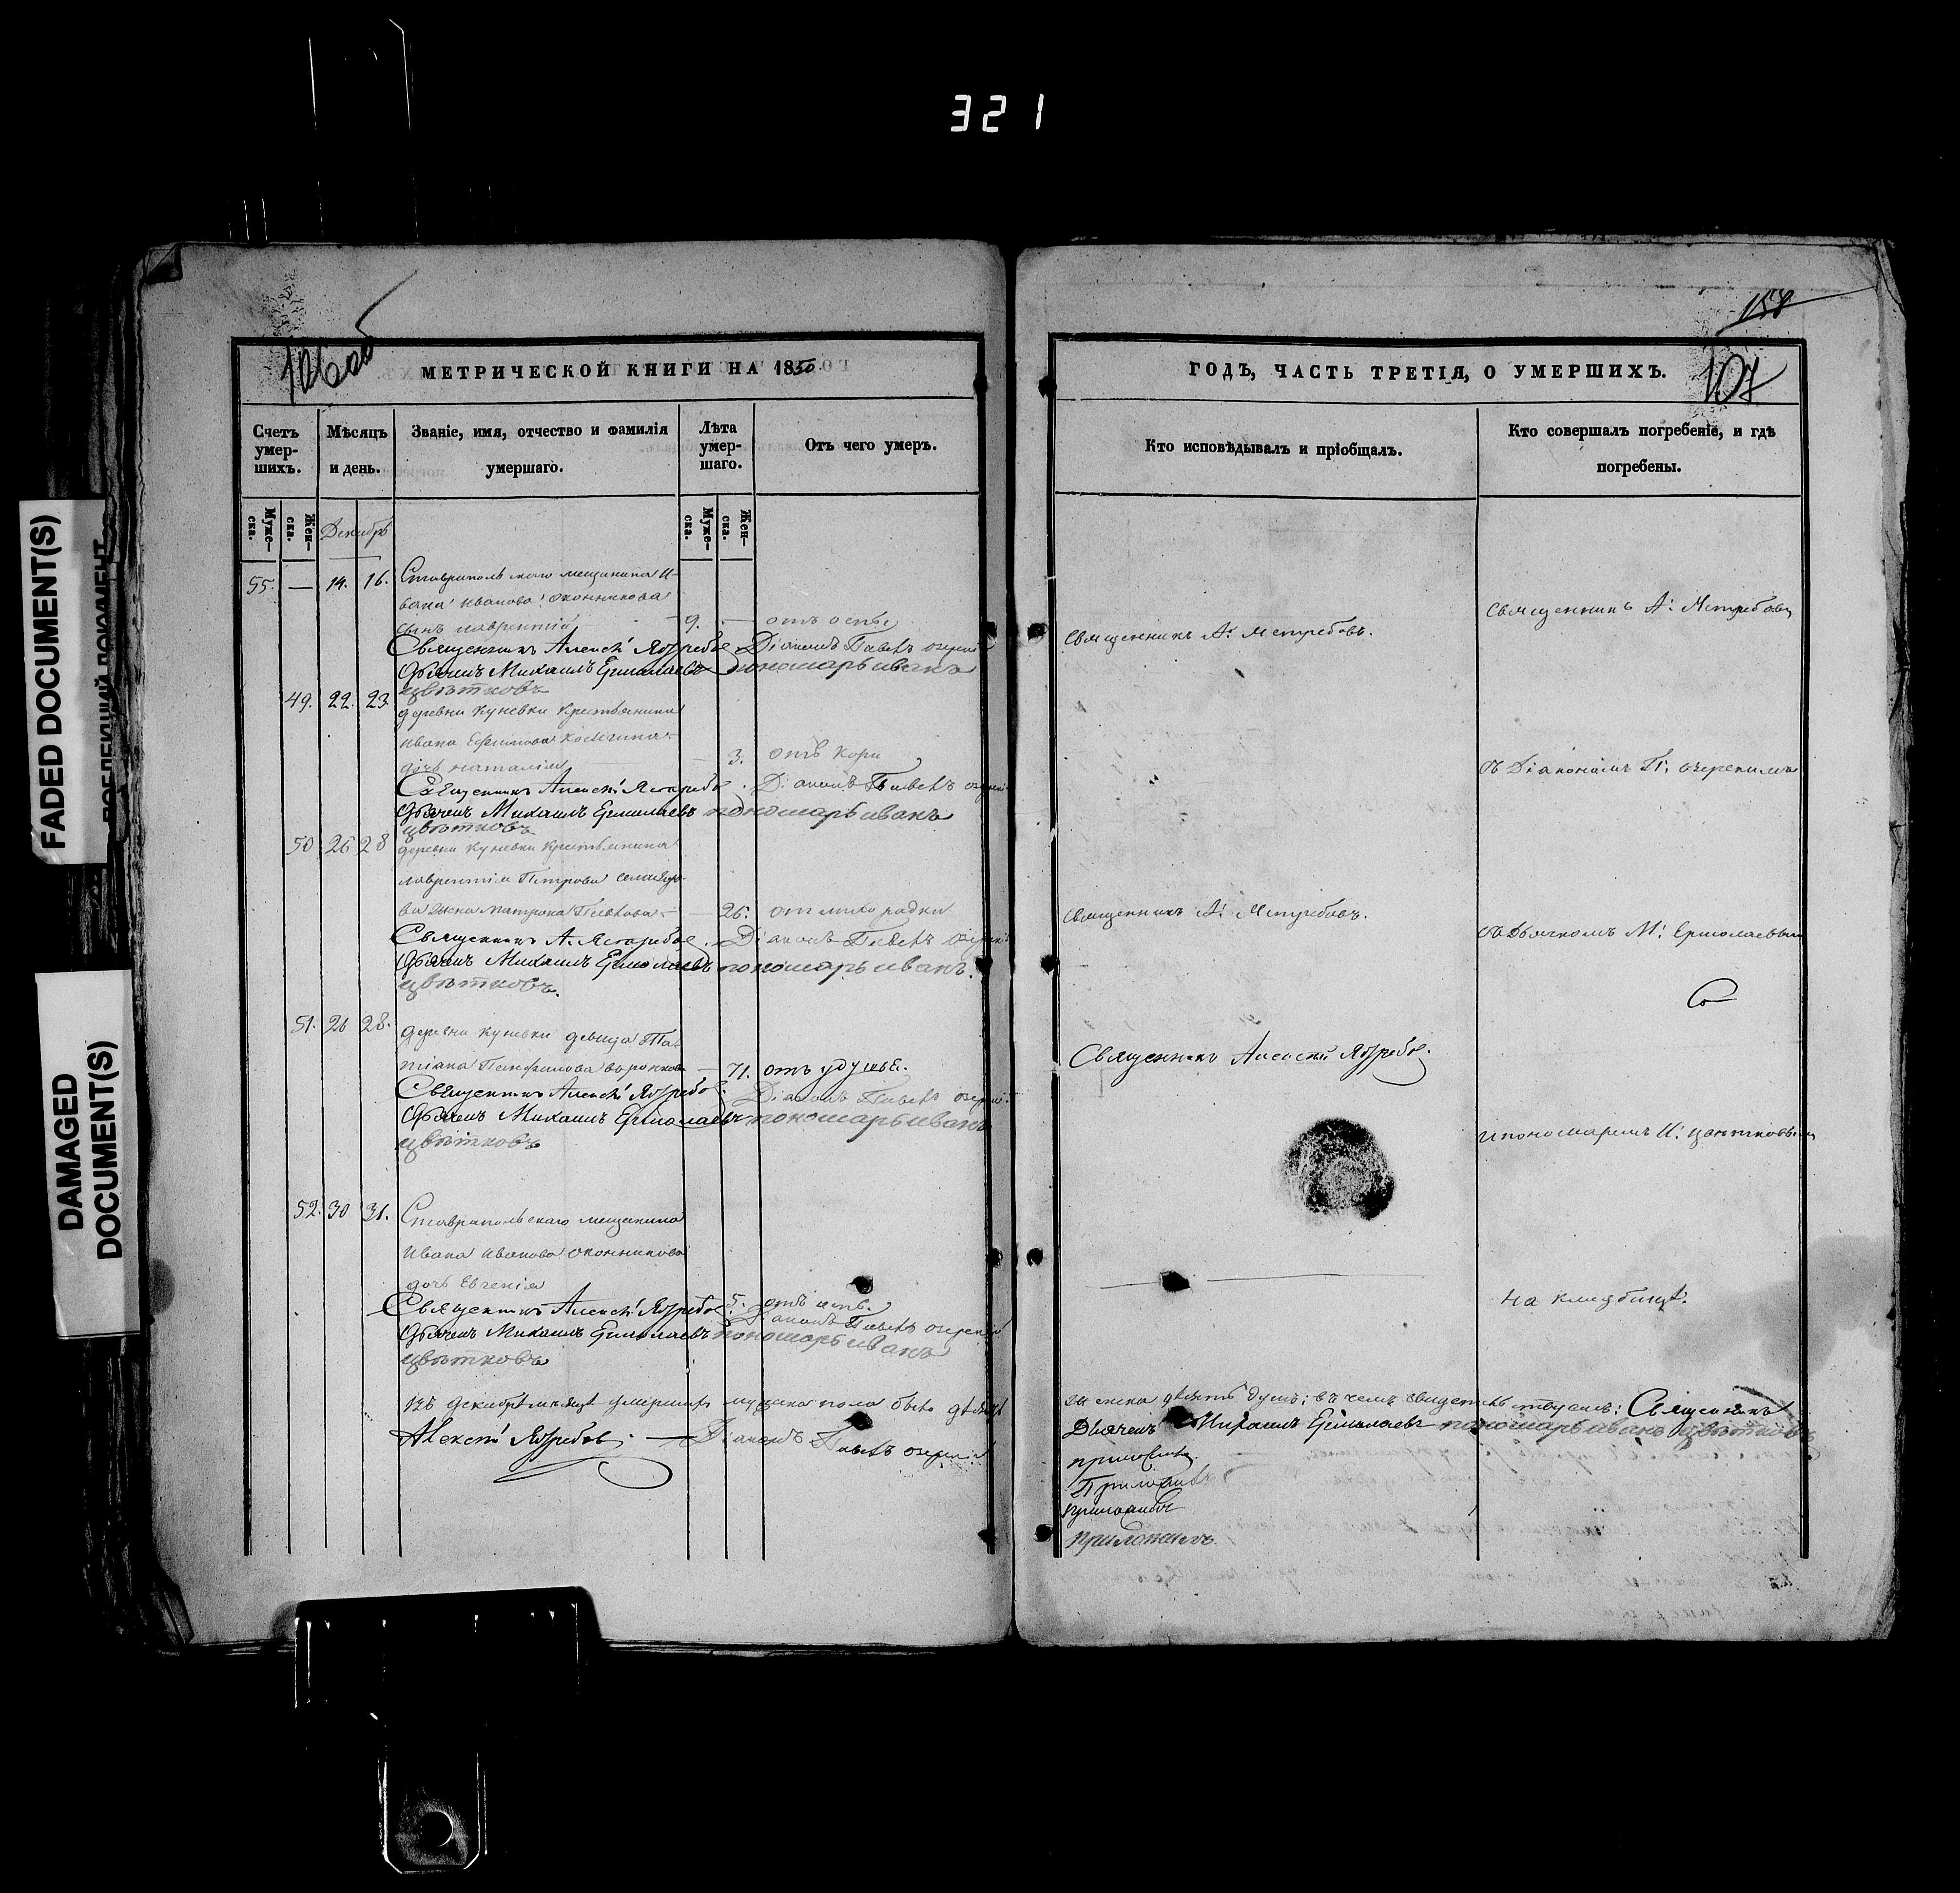 321
FADED DOCUMENT(S)
DAMAGED
DOCUMENT(S)
106об
МЕТРИЧЕСКОЙ КНИГИ НА 1850
Счетъ умер-шихъ.
Мѣсяцъ и день.
Званіе, имя, отчество и фамилія умершаго.
Лѣта умер-шаго.
Отъ чего умеръ.
Муже-ска.
Жен-ска.
Декабрь
Муже-ска.
Жен-ска.
55. — 14. 16. Ставропольскаго мещанина И-
вана Иванова Оконникова
сынъ лаврентій 9. — отъ оспы
Священникъ Алексѣй Ястребовъ Діаконъ Павелъ
Дьячекъ Михаилъ Ермолаевъ пономарь иванъ
цвѣтковъ
49. 22. 23. деревни Куневки Крестьянина
ивана Ефимова
дочь наталія — 3. отъ кори
Священникъ Алексѣй Ястребовъ. Діаконъ Павелъ
Дьячекъ Михаилъ Ермолаевъ пономарь иванъ
цвѣтковъ
50 26 28 деревни Куневки Крестьянина
лаврентія Петрова
жена матрона — 26. от лихорадки
Священникъ А. Ястребовъ. Діаконъ Павелъ
Дьячекъ Михаилъ Ермолаевъ пономарь иванъ.
цвѣтковъ.
51. 26 28. деревни куневки девица Та-
тіана — 71. отъ удушья.
Священникъ Алексѣй Ястребовъ. Діаконъ Павелъ
Дьячекъ Михаилъ Ермолаевъ пономарь иванъ
цвѣтковъ
52. 30 31. Ставропольскаго мещанина
Ивана Иванова Оконникова
дочь Евгенія
5. отъ оспы.
Священникъ Алексѣй Ястребовъ Діаконъ Павелъ
Дьячекъ Михаилъ Ермолаевъ пономарь иванъ
цвѣтковъ
декабрѣ мѣсяцѣ умершихъ мужеска пола было
Алексѣй Ястребовъ. — Діаконъ Павелъ
158
107
ГОДЪ, ЧАСТЬ ТРЕТІЯ, О УМЕРШИХЪ.
Кто исповѣдывалъ и пріобщалъ.
Кто совершалъ погребеніе, и гдѣ погребены.
Священникъ А. Ястребовъ.
Священникъ А. Ястребовъ
съ Діакономъ П.
Священникъ А. Ястребовъ.
съ Дьячкомъ М. Ермолаевымъ
Священникъ Алексѣй Ястребовъ.
и пономаремъ И. цветковымъ
на кладбищѣ.
женска душъ; въ чемъ свидетельствуемъ: Священникъ
Дьячекъ Михаилъ Ермолаевъ пономарь иванъ цвѣтковъ
приложилъ.
Приложилъ
приложилъ
приложилъ.